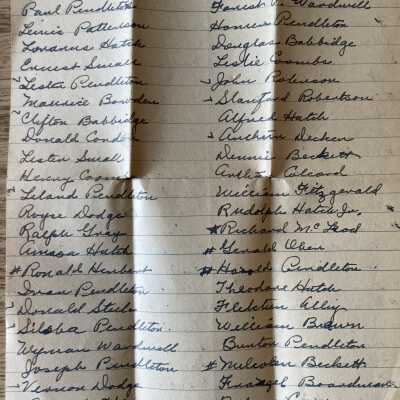 Paul Pendleton
Linnie Patterson
Lovanna Hatch
Ernest Small
Lester Pendleton
Maurice Bowden
Clifton Babbidge
Donald Condon
Lester Small
Henry
Leland Pendleton
Royce Dodge
Ralph Gray
Amasa Hatch
# Ronald Herbert
Ivan Pendleton
Donald Steele
Silsba Pendleton.
Wyman Wardwell
Joseph Pendleton
Vernon Dodge
Wardwell
Homer Pendleton
Douglas Babbidge
Leslie Coombs
John Robinson
Stanford Robertson
Alfred Hatch
Decker
Dennis Beckett
William Fitzgerald
Rudolph Hatch Jr.
Richard McLeod
# Gerald
# Harold Pendleton.
Theodore Hatch
Fletcher
William Brown
Burton Pendleton
# Beckett
Boardman